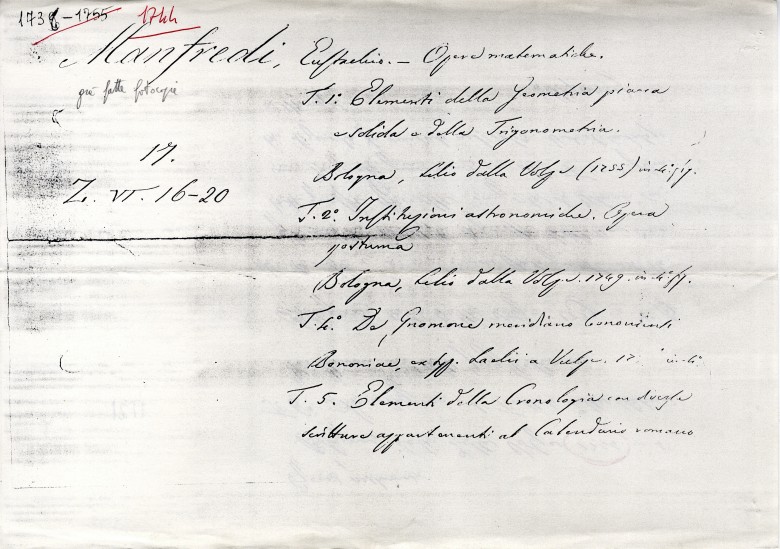 1738-1755 1744
Manfredi, Eustachio. - Opere matematiche.
già fatte fotocopie
T. 1º Elementi della Geometria piana
e solida e della Trigonometria.
17.
Bologna, Lelio dalla Volpe (1755) in-4º fig.
Z. VI. 16-20
T. 2º Instituzioni astronomiche. Opera
postuma
Bologna, Lelio dalla Volpe 1749. in-4º fig.
T. 4º De Gnomone meridiano bononiensi
Bononiae, ex typ. Laelii a Vulpe. 17 in-4º
T. 5. Elementi della Cronologia con diverse
scritture appartenenti al Calendario romano